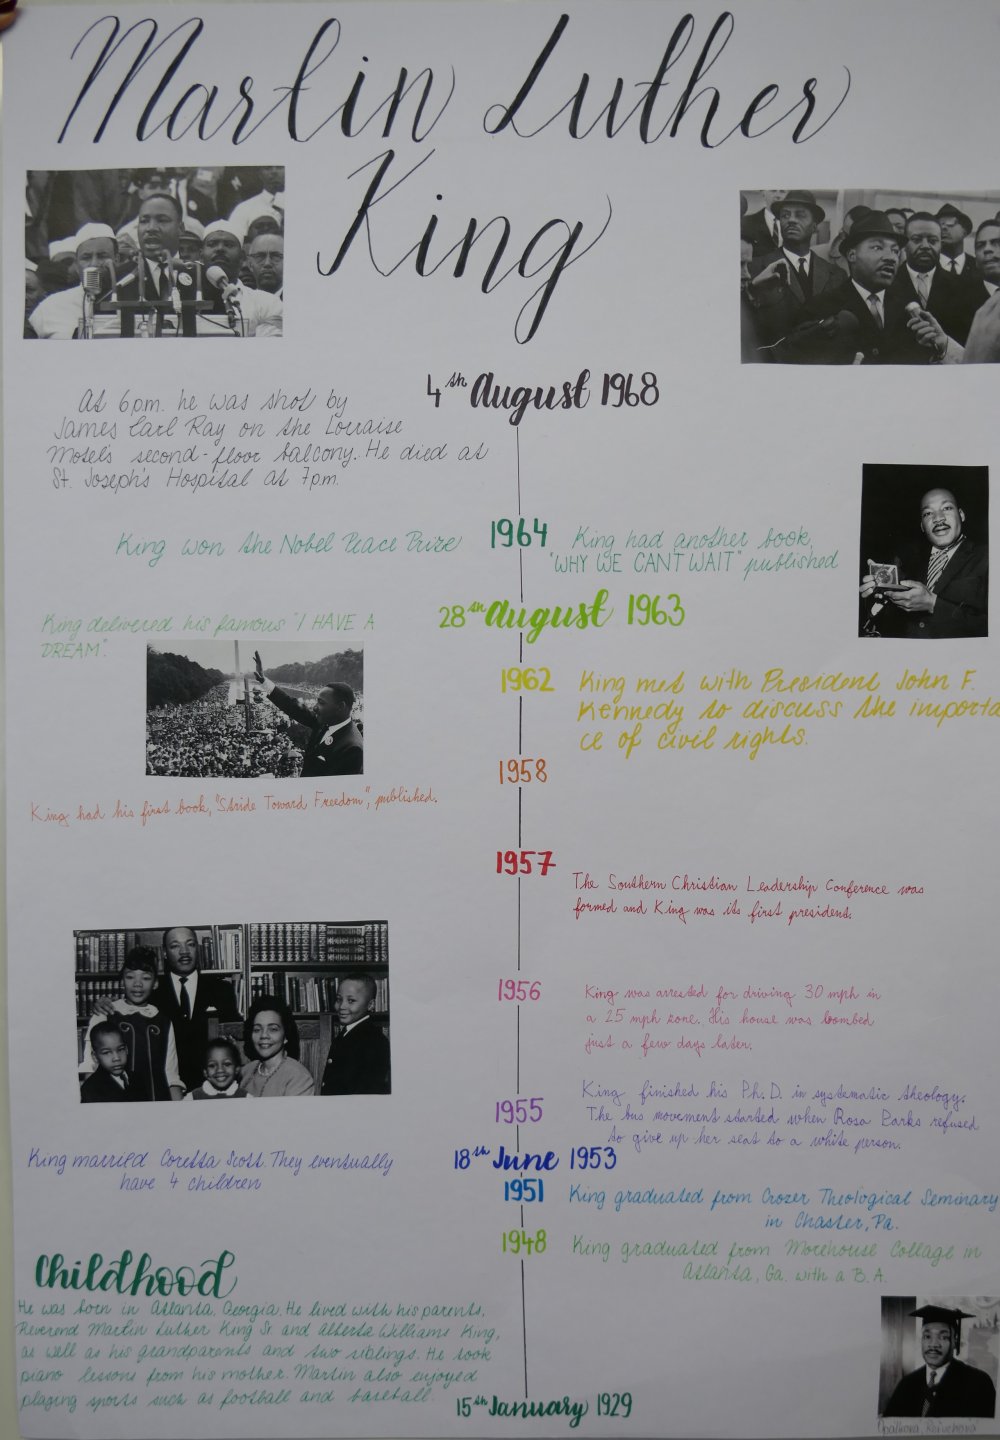 Martin Luther
King
4th August 1968
At 6pm. he was shot by
James Earl Ray on the Lorraise
Motel's second-floor balcony. He died at
St. Joseph's Hospital at 7pm.
1964
King won the Nobel Peace Prize
King had another book,
"WHY WE CANT WAIT" published
28th August 1963
King delivered his famous "I HAVE A
DREAM".
1962
King met with President John F.
Kennedy to discuss the importa
ce of civil rights.
1958
King had his first book, "Stride Toward Freedom", published.
1957
The Southern Christian Leadership Conference was
formed and King was its first president.
1956
King was arrested for driving 30 mph in
a 25 mph zone. His house was bombed
just a few days later.
1955
King finished his Ph.D. in systematic theology.
The bus movement started when Rosa Parks refused
to give up her seat to a white person.
18th June 1953
King married Coretta Scott. They eventually
have 4 children
1951
King graduated from Crozer Theological Seminary
in Chaster, Pa.
1948
King graduated from Morehouse Collage in
Atlanta, Ga. with a B.A.
Childhood
He was born in Atlanta, Georgia. He lived with his parents,
Reverend Martin Luther King Sr. and Alberta Williams King,
as well as his grandparents and two siblings. He took
piano lessons from his mother. Martin also enjoyed
playing sports such as football and baseball.
15th January 1929